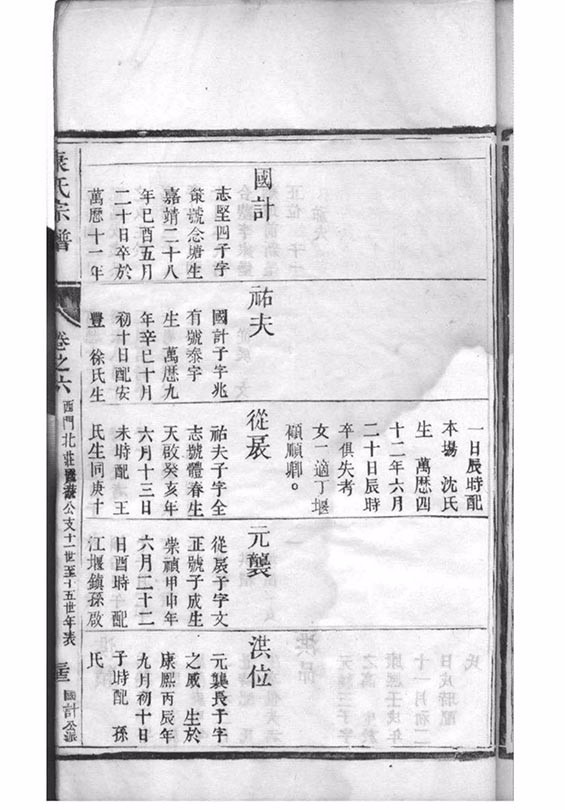 國計
志堅四子字
策號念塘生
嘉靖二十八
年巳酉五月
二十日卒於
萬曆十一年
祐夫
國計子字兆
有號泰宇
生萬曆九
年辛巳十月
初十日配安
豐 徐氏生
一日辰時配
本場 沈氏
生 萬曆四
十二年六月
二十日辰時
卒俱失考
女一適丁堰
顧順卿。
從扆
祐夫子字全
志號體春生
天啟癸亥年
六月十三日
未時配 王
氏生同庚十
元襲
從扆子字文
正號子成生
崇禎甲申年
六月二十二
日酉時配
江堰鎮孫啟
洪位
元襲長子字
之威 生於
康熙丙辰年
九月初十日
子時配 孫
氏
氏宗譜
卷之六
西門北莊 公支十一世至十五世年表
國計公派